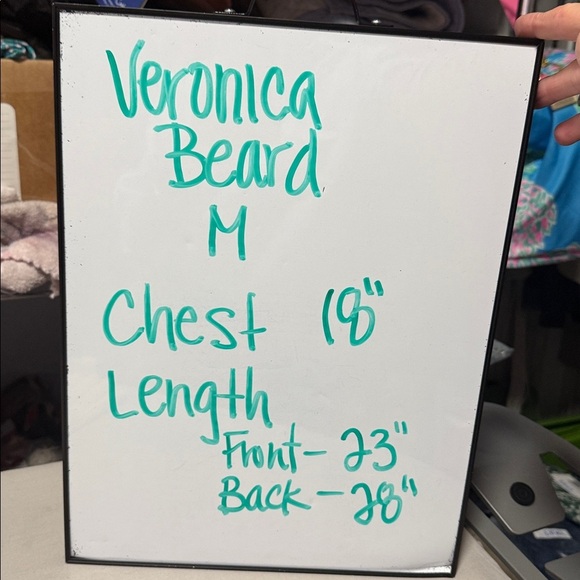 Veronica
Beard
M
Chest 18"
Length
Front - 23"
Back - 28"